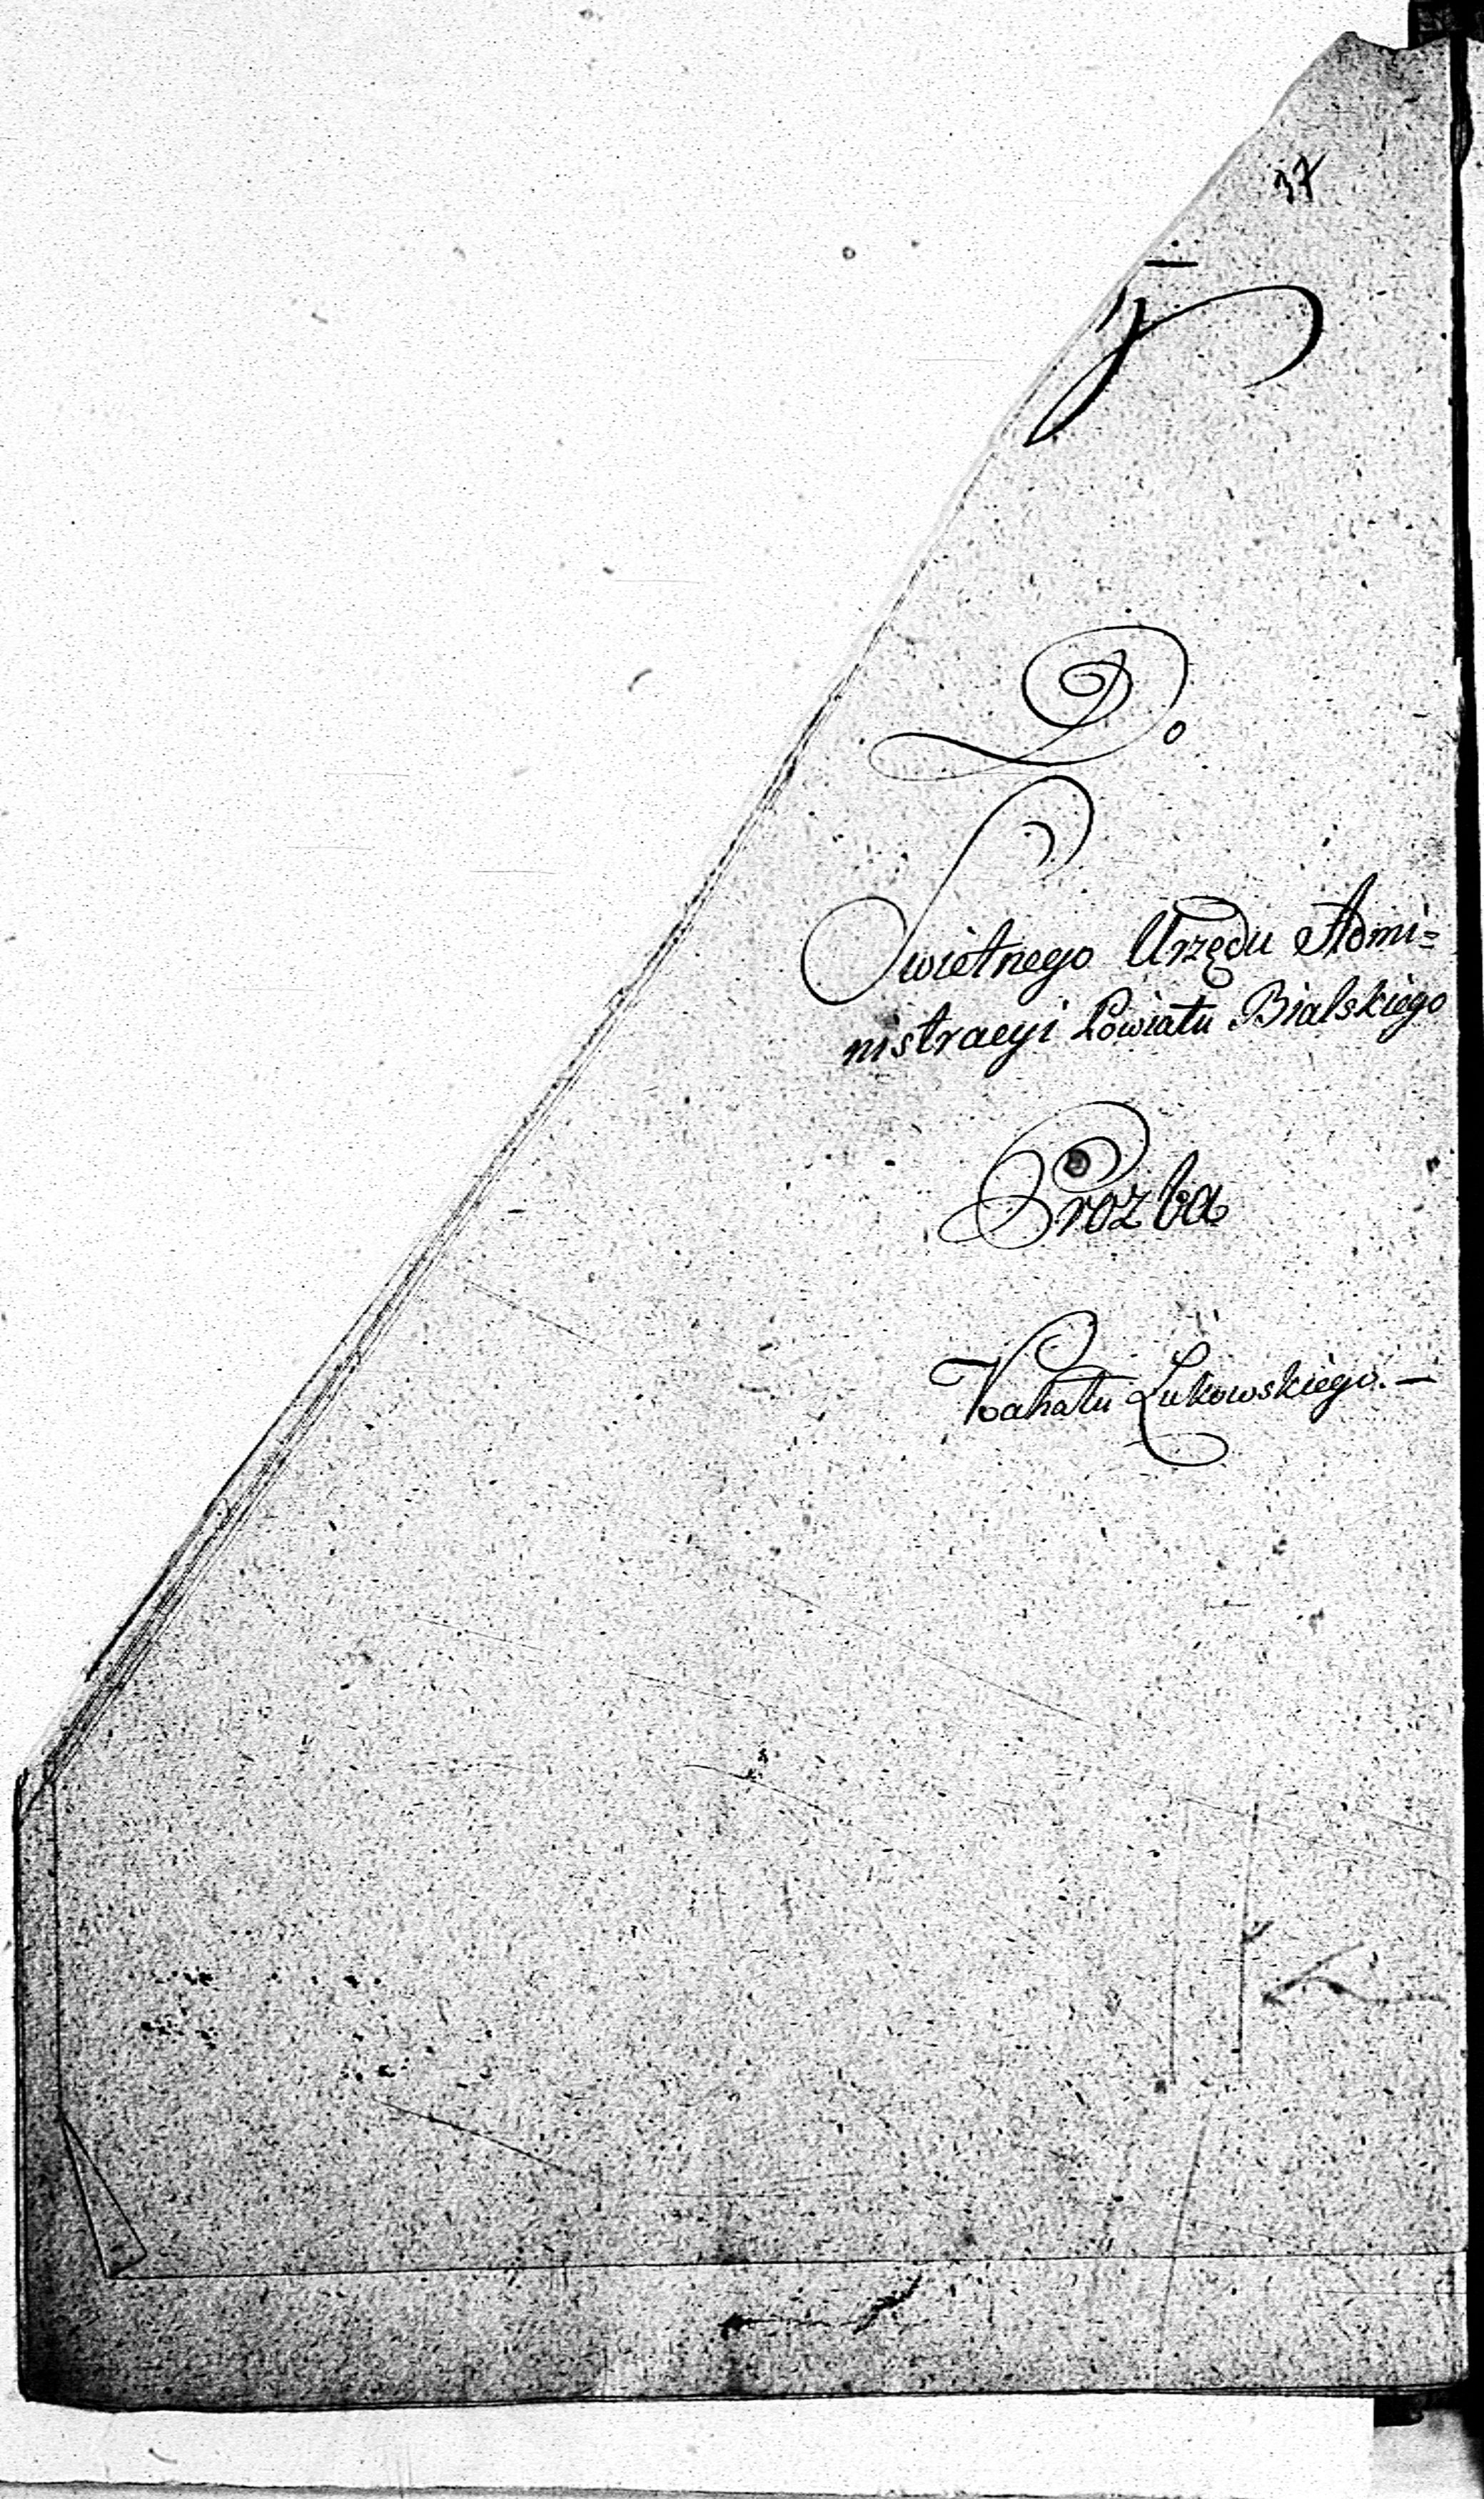 37
Do
Swietnego Urzędu Admi=
nistracyi Powiatu Bialskiego
Prozba
Kahału Łukowskiego. —